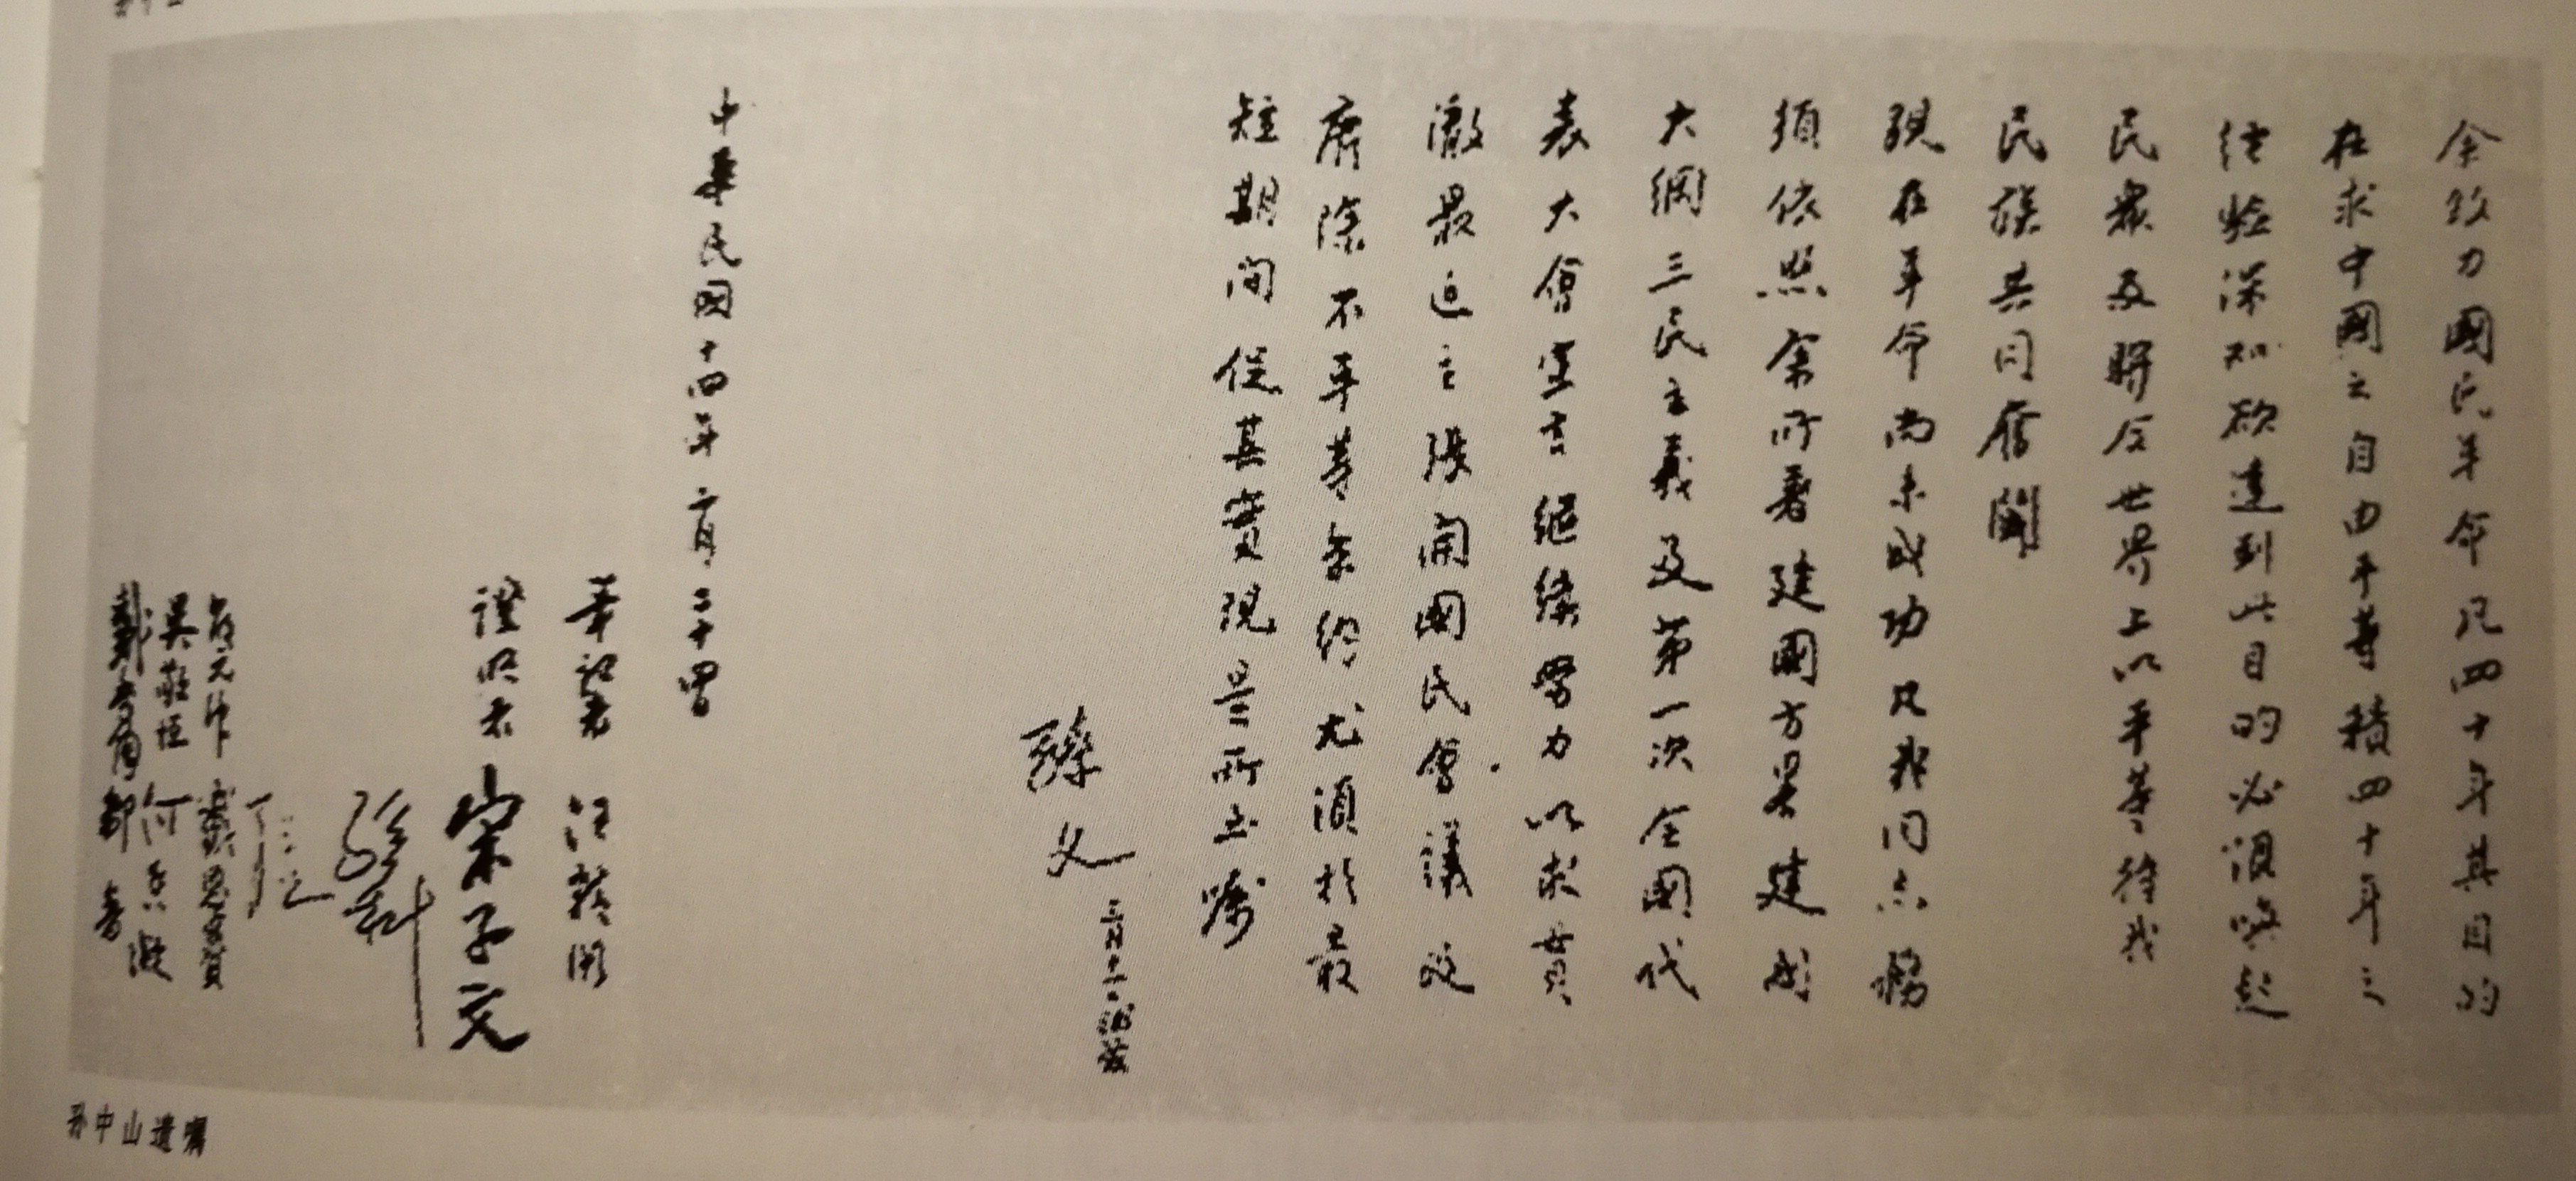 余致力國民革命凡四十年其目的
在求中國之自由平等積四十年之
經驗深知欲達到此目的必須喚起
民眾及聯合世界上以平等待我
民族共同奮鬪
現在革命尚未成功凡我同志務
須依照余所著建國方畧建國
大綱三民主義及第一次全國代
表大會宣言繼續努力以求貫
澈最近主張開國民會議及
廢除不平等条約尤須於最
短期间促其實現是所至嘱
孫文 三月十一日補簽
中華民國十四年二月二十四日
筆記者 汪精衛
證明者 宋子文
孫科
孔祥熙
邵元冲 戴恩賽
吳敬恒 何香凝
戴季陶 鄒魯
孙中山遗嘱